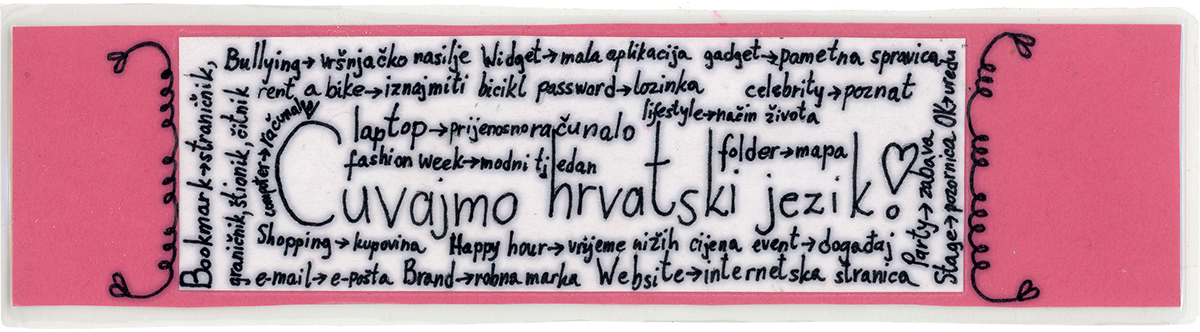 Bullying→vršnjačko nasilje Widget→mala aplikacija gadget→pametna spravica
rent a bike→iznajmiti bicikl password→lozinka celebrity→poznat
laptop→prijenosno računalo lifestyle→način života
fashion week→modni tjedan folder→mapa
Čuvajmo hrvatski jezik!
Shopping→kupovina Happy hour→vrijeme nižih cijena event→događaj
e-mail→e-pošta Brand→robna marka Website→internetska stranica
Bookmark→straničnik,
graničnik, štionik, čitnik
computer→računalo
Party→zabava
Stage→pozornica OK→uredu